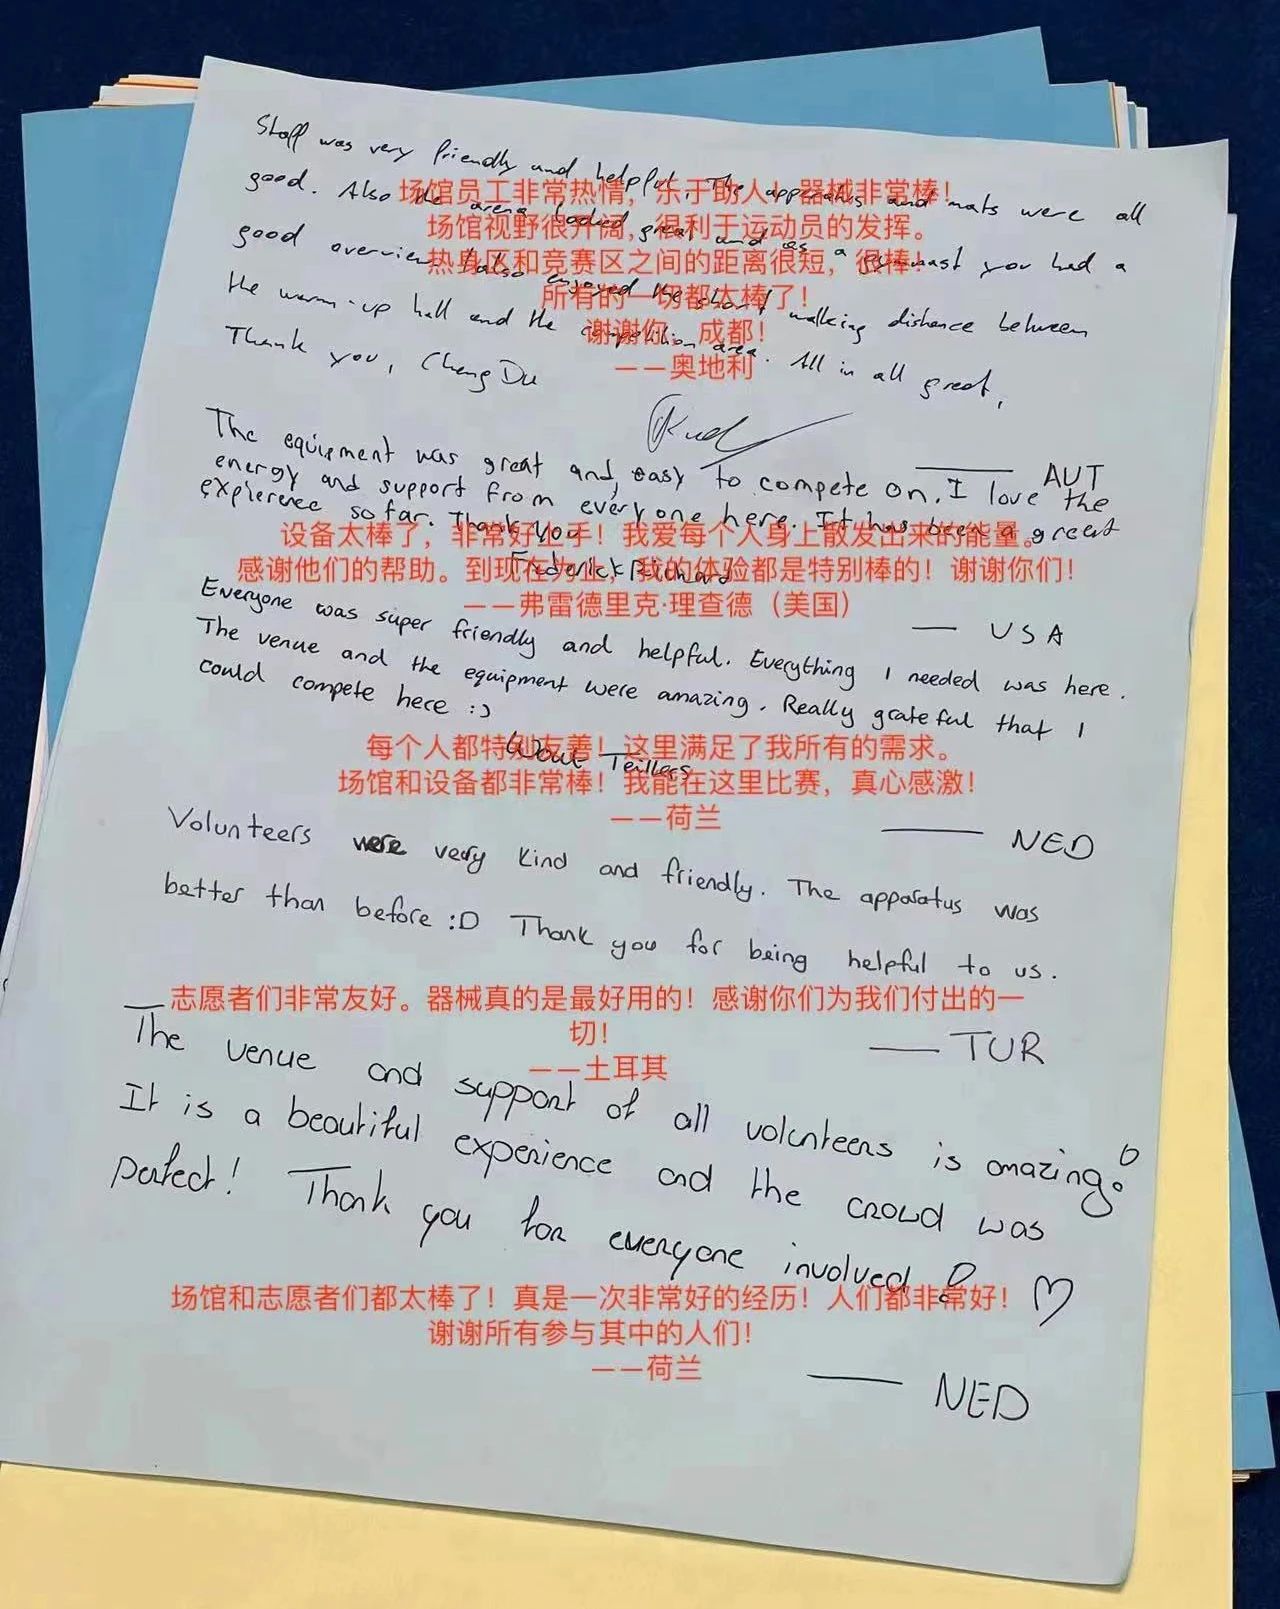 Staff was very friendly and helpful. The apparatus and mats were all
场馆员工非常热情，乐于助人！器械非常棒！
good. Also the arena looked great and as a gymnast you had a
场馆视野很开阔，很利于运动员的发挥。
good overview. I also enjoyed the short walking distance between
热身区和竞赛区之间的距离很短，很棒！
the warm-up hall and the competition area. All in all great,
所有的一切都太棒了！
Thank you, ChengDu
谢谢你，成都！
——奥地利
—— AUT
The equipment was great and easy to compete on. I love the
energy and support from everyone here. It has been a great
expierence so far. Thank you
设备太棒了，非常好上手！我爱每个人身上散发出来的能量。
Frederick Richard
感谢他们的帮助。到现在为止，我的体验都是特别棒的！谢谢你们！
——弗雷德里克·理查德（美国）
— USA
Everyone was super friendly and helpful. Everything I needed was here.
The venue and the equipment were amazing. Really grateful that I
could compete here :)
每个人都特别友善！这里满足了我所有的需求。
Wout Teillers
场馆和设备都非常棒！我能在这里比赛，真心感激！
——荷兰
—— NED
Volunteers were very kind and friendly. The apparatus was
better than before :D Thank you for being helpful to us.
志愿者们非常友好。器械真的是最好用的！感谢你们为我们付出的一
切！
——土耳其
— TUR
The venue and support of all volunteers is amazing!
It is a beautiful experience and the crowd was
perfect! Thank you for everyone involved! ♡
场馆和志愿者们都太棒了！真是一次非常好的经历！人们都非常好！
谢谢所有参与其中的人们！
——荷兰
—— NED